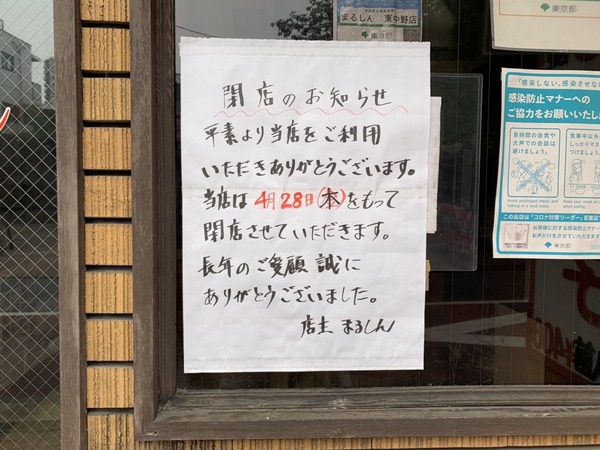 閉店のお知らせ
平素より当店をご利用
いただきありがとうございます。
当店は4月28日(木)をもって
閉店させていただきます。
長年のご愛顧誠に
ありがとうございました。
店主 まるしん
まるしん 東中野店
東京都
東京都
「感染しない、感染させない
感染防止マナーへの
ご協力をお願いいたしま
長時間の会食や
大声での会話は
避けましょう。
Avoid prolonged meals and
talking in a loud voice.
食事中以外
しっかりマス
つけましょう
このお店は「コロナ対策リーダー」配置店
お客様に対する感染防止マナー
お声がけをさせていただ
東京都